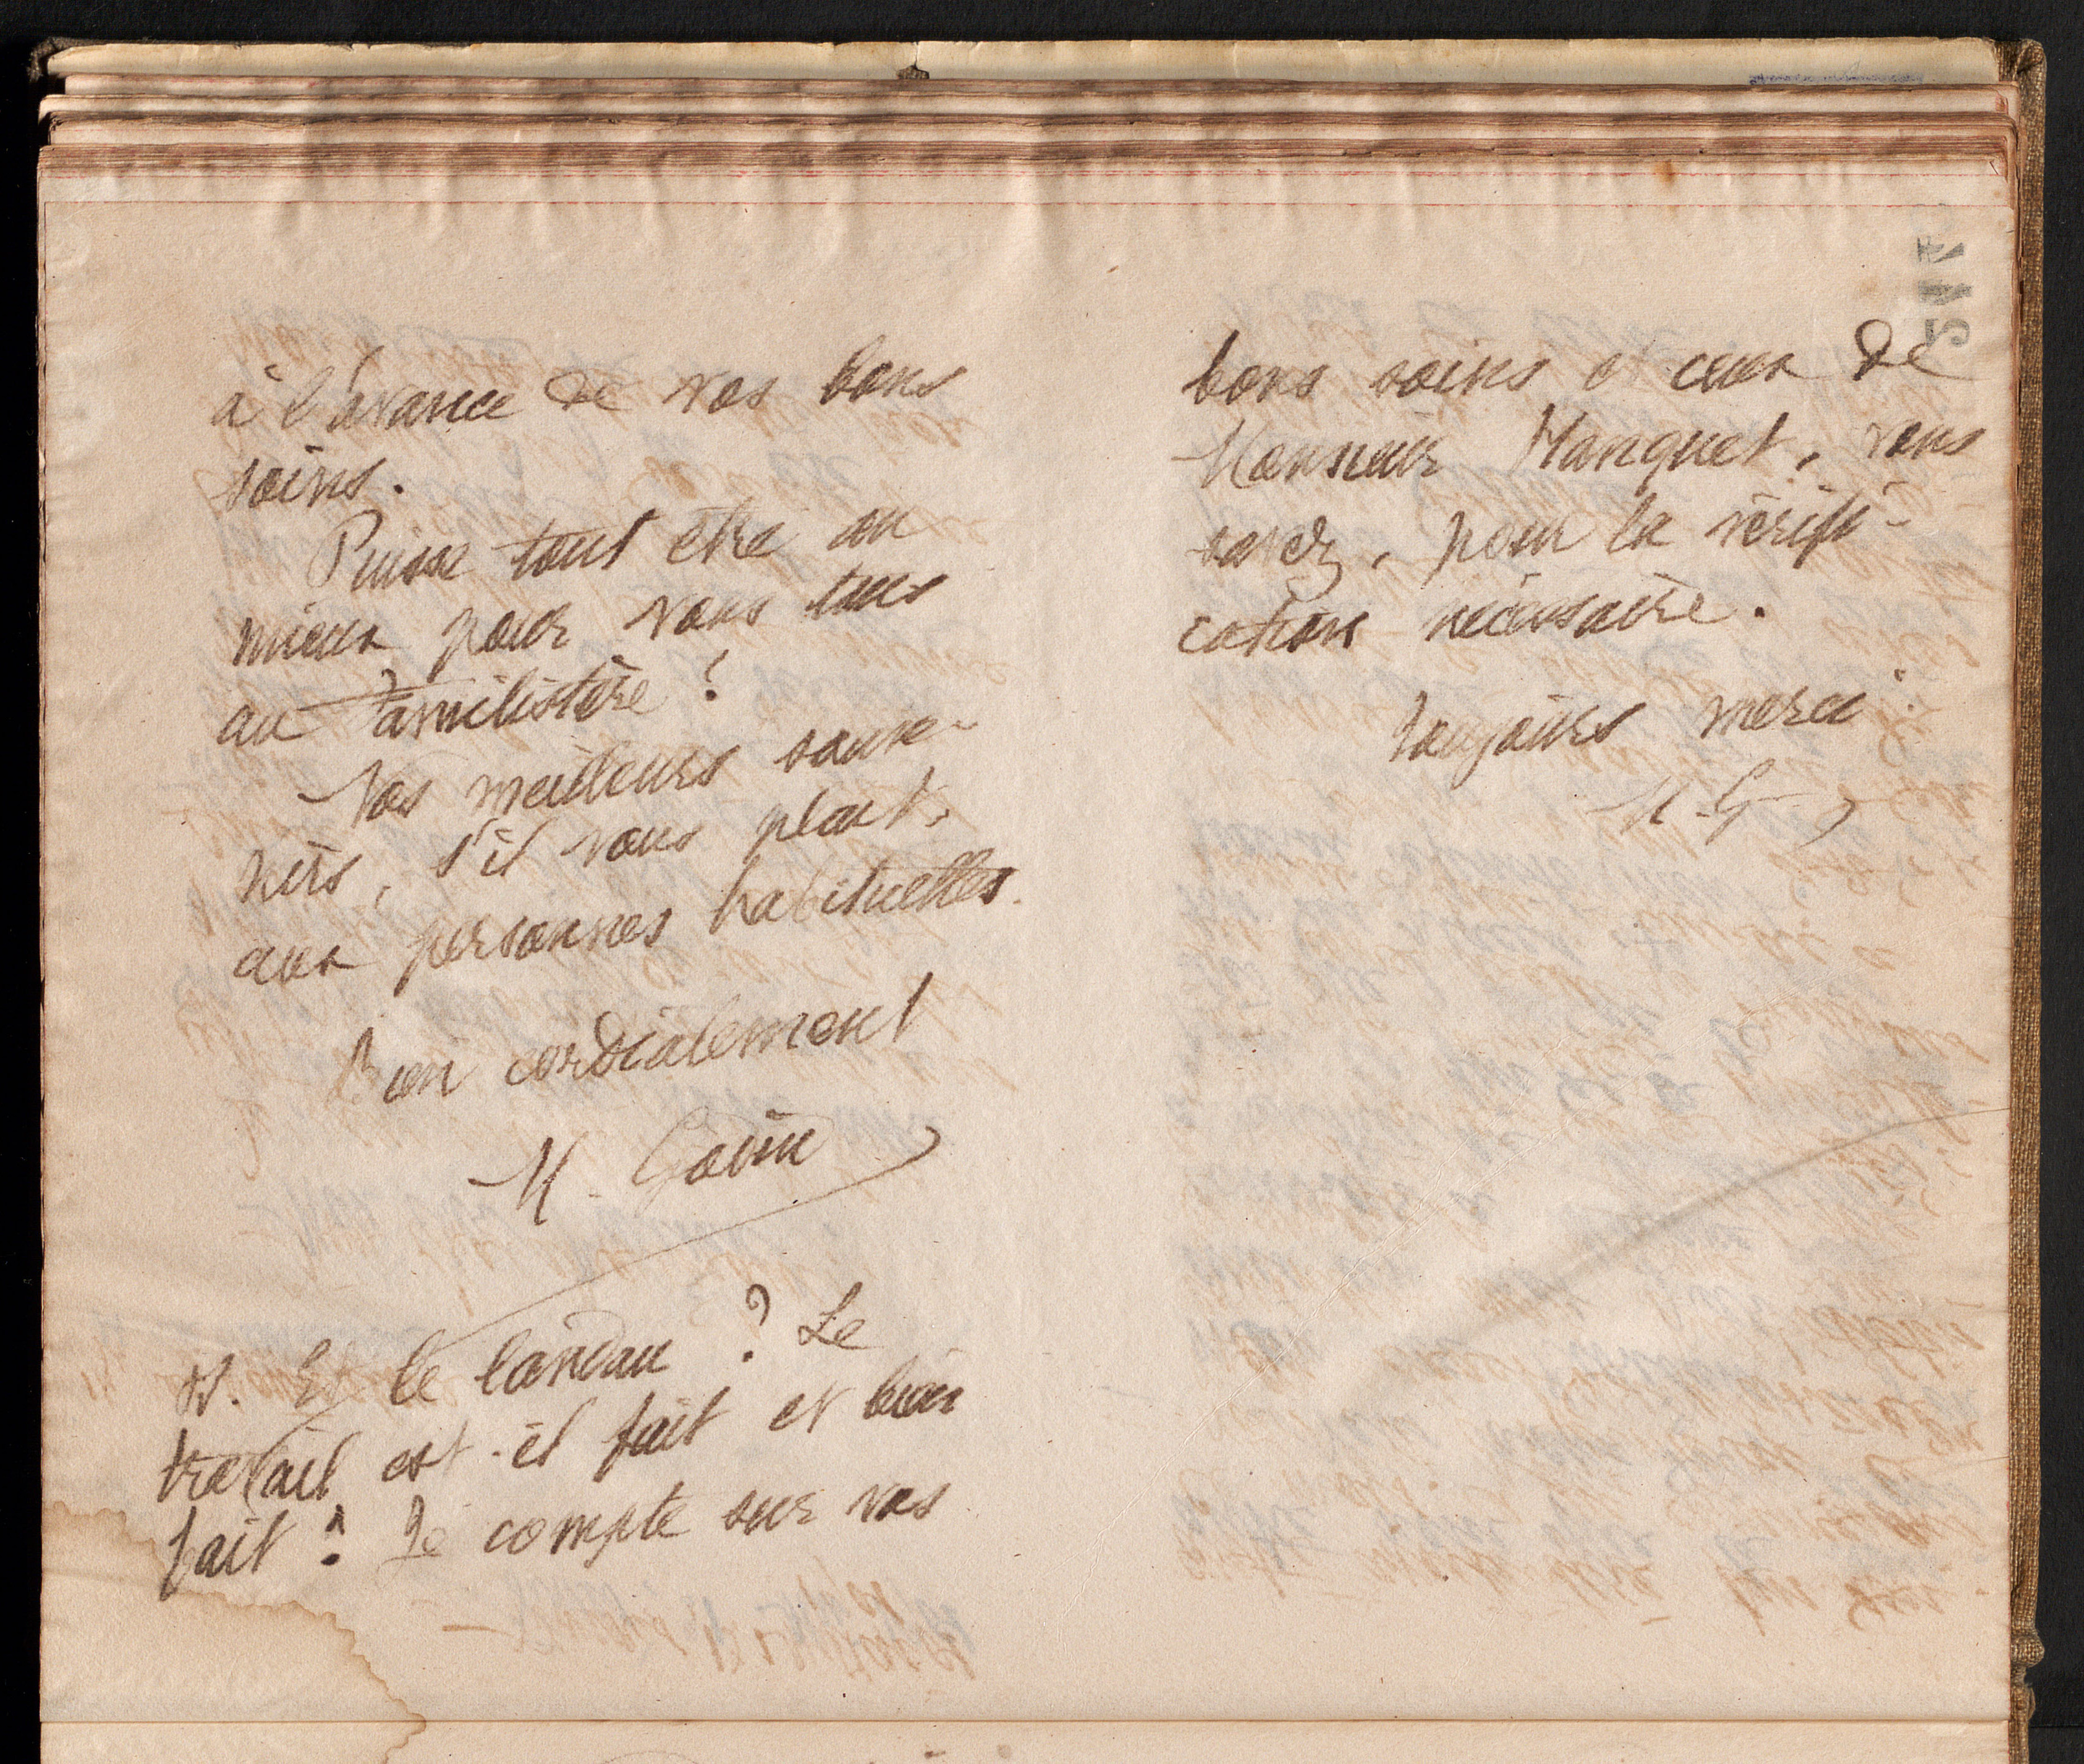 à l'avance de vos bons
soins.
Puisse tout être au
mieux pour vous tous
au Familistère !
Nos meilleurs souve-
nirs, s'il vous plait,
aux personnes habituelles.
Bien cordialement
M. Godin
P.S. Et le landau ? Le
travail est-il fait et bien
fait ? Je compte sur vos
bons soins et ceux de
Monsieur Manquet, vous
savez, pour la vérifi-
cation nécessaire.
Toujours merci.
M. G.